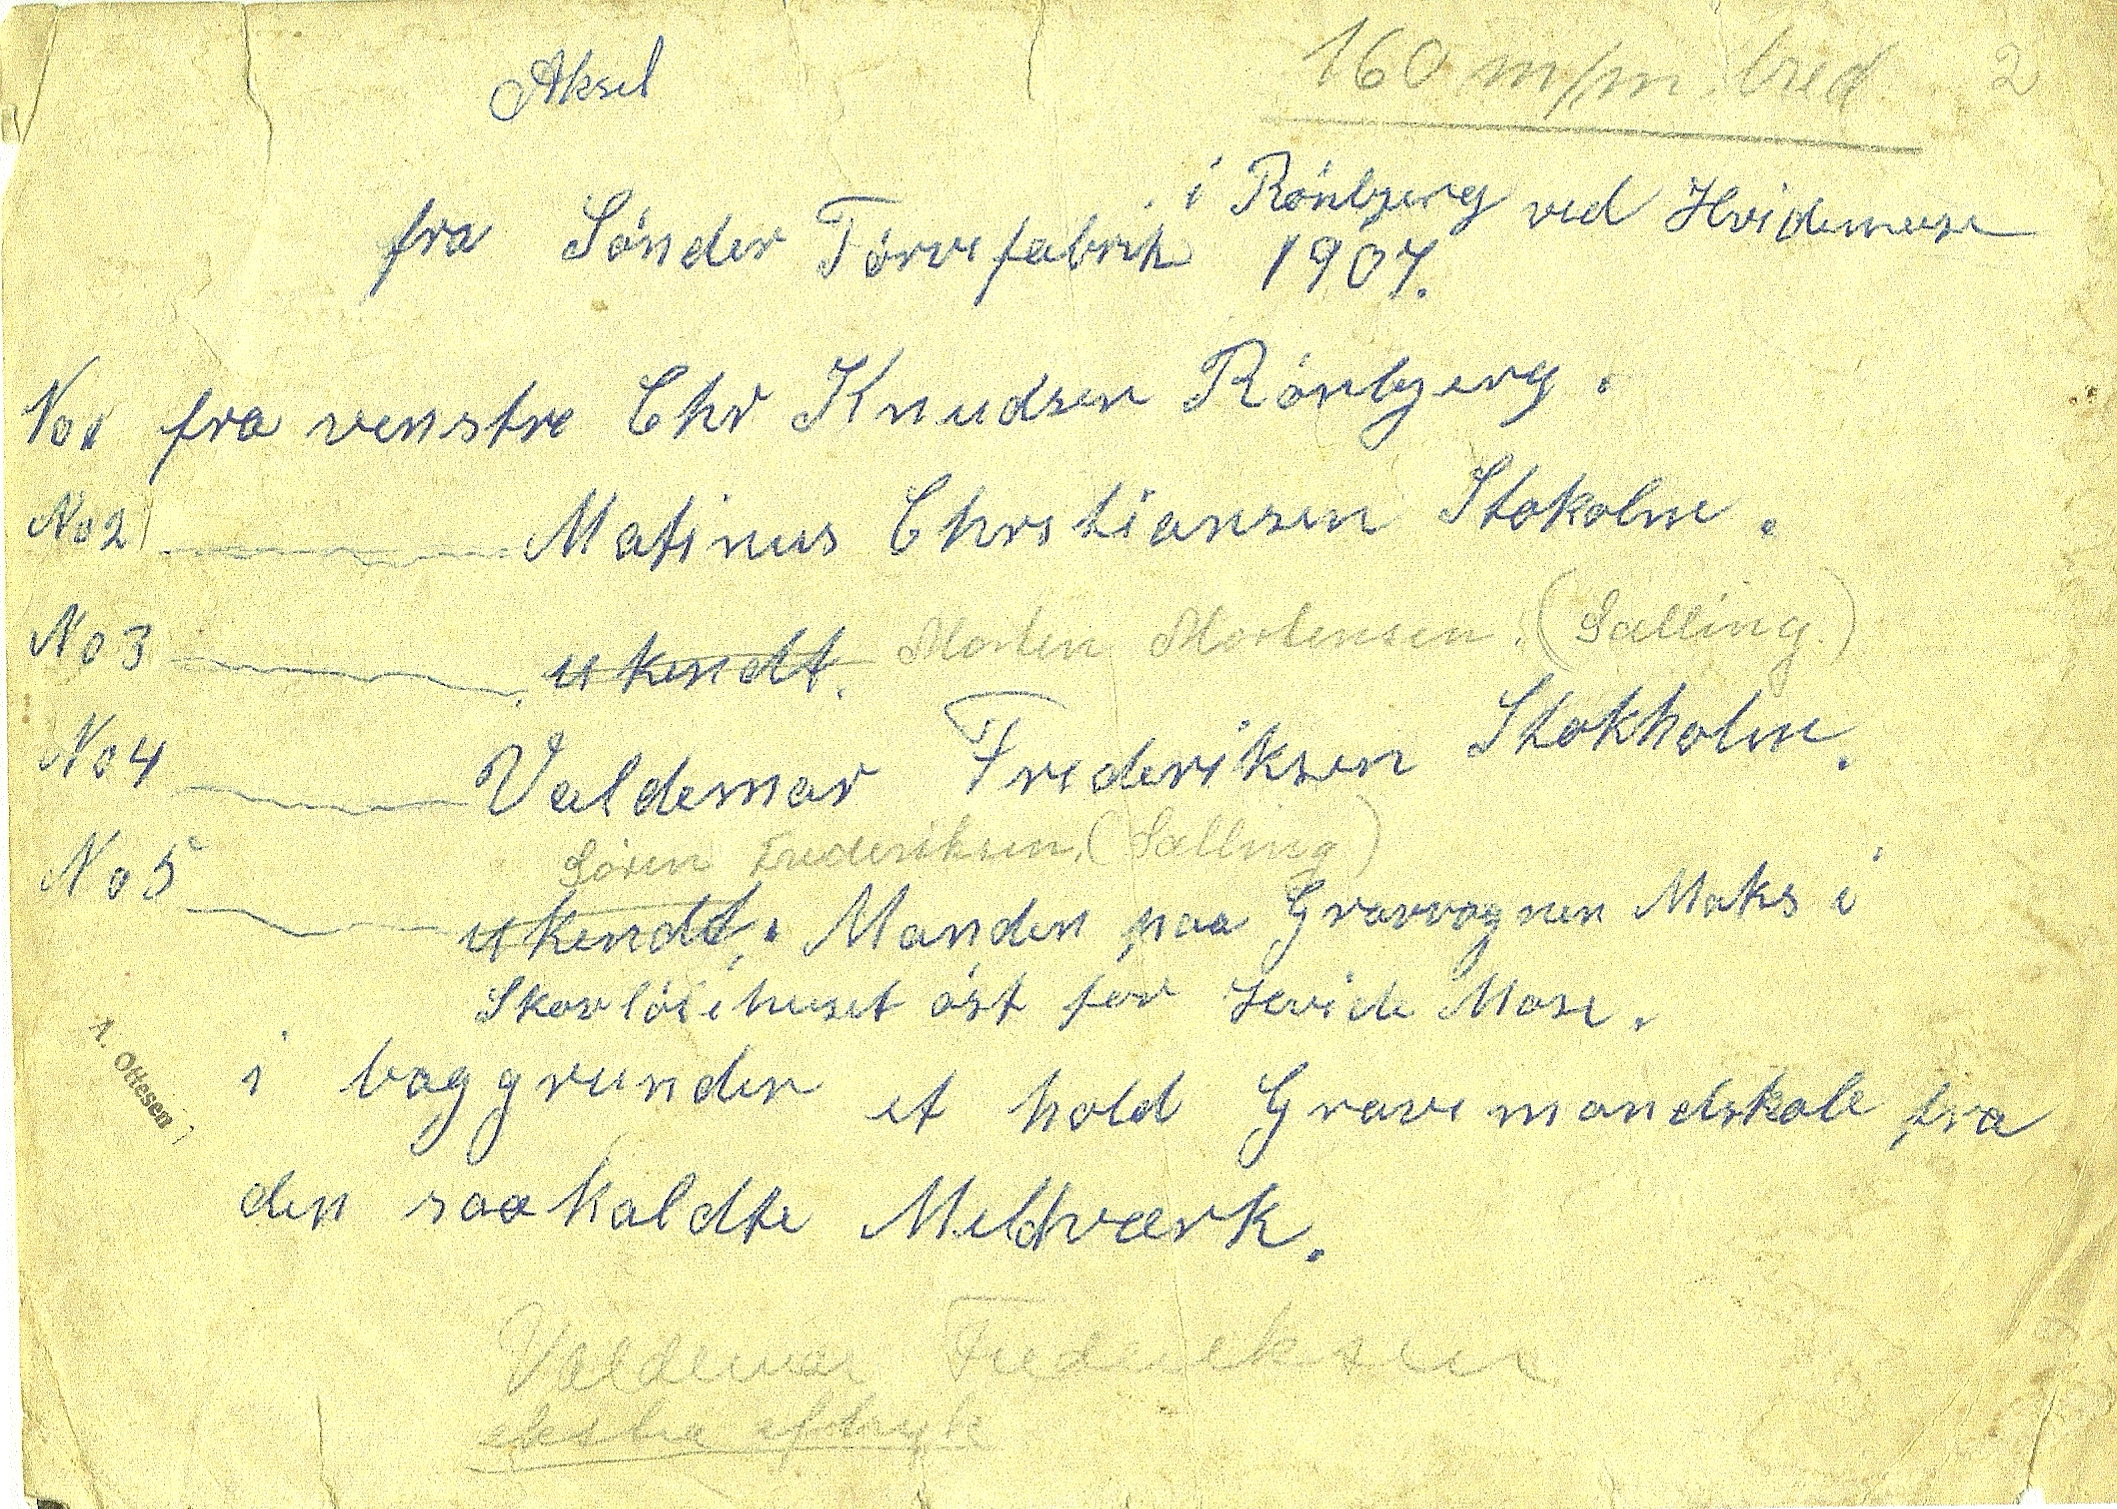 Aksel
160 m/m bred 2
i Rönbjerg ved Hvidemose
fra Sönder Törvefabrik 1907.
No1 fra venstre Chr Knudsen Rönbjerg.
No2 Matinus Christiansen Stokolm.
No3 ukendt. Morten Mortensen. (Salling.)
No4 Valdemar Frederiksen Stokholm.
Sören Frederiksen. (Salling)
No5 ukendt. Manden paa Gravvognen Maks i
Skovlöiehuset öst for Hvide Mose.
i baggrunden et hold Gravemandskab fra
den saakaldte Meldværk.
A. Ottesen
Valdemar Frederiksen
ekstra aftryk